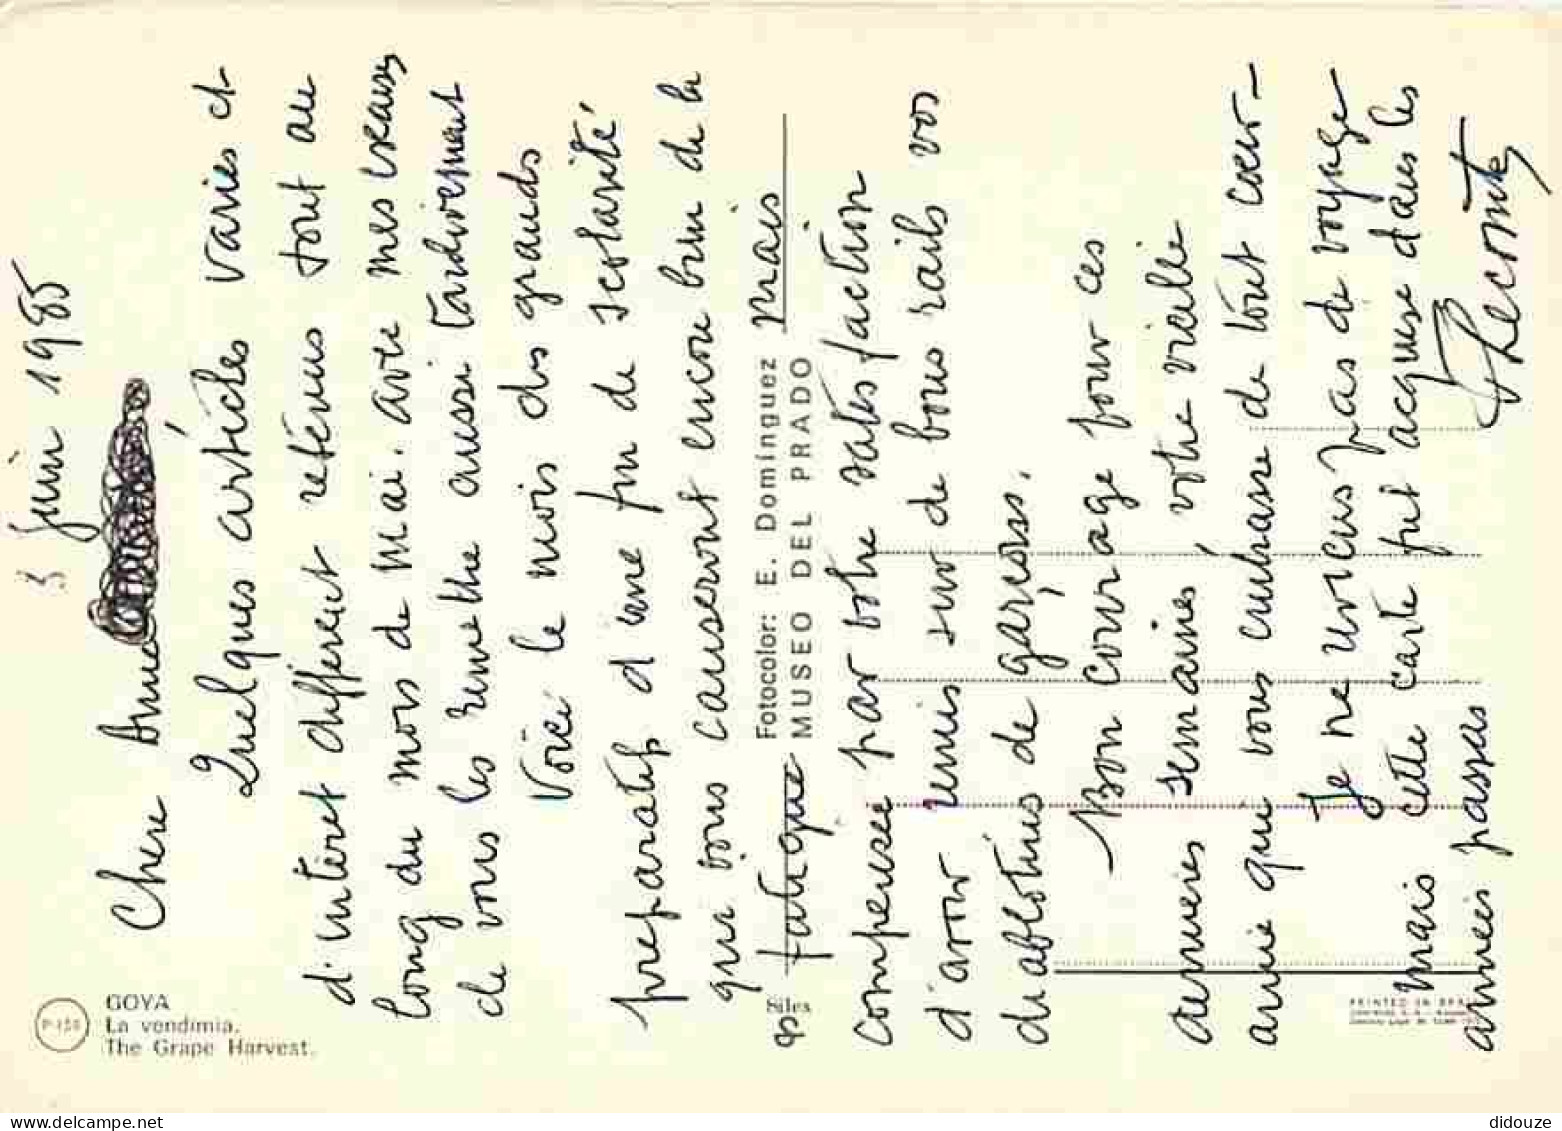 3 juin 1985
Chère Annie
Quelques articles variés et
d'intérêt différent retenus tout au
long du mois de mai. avec mes excuses
de vous les remettre aussi tardivement
Voici le mois des grands
préparatifs d'une fin de scolarité
qui vous causeront encore bien de la
fatigue mais
compensée par votre satisfaction
d'avoir remis sur de bons rails vos
diablotins de garçons.
Bon courage pour ces
dernières semaines, votre vieille
amie qui vous embrasse de tout cœur –
Je ne reviens pas de voyage
mais cette carte fut acquise dans les
années passées
Lecomte
P-158
GOYA
La vendimia.
The Grape Harvest.
Siles
Fotocolor: E. Domínguez
MUSEO DEL PRADO
PRINTED IN
didouze